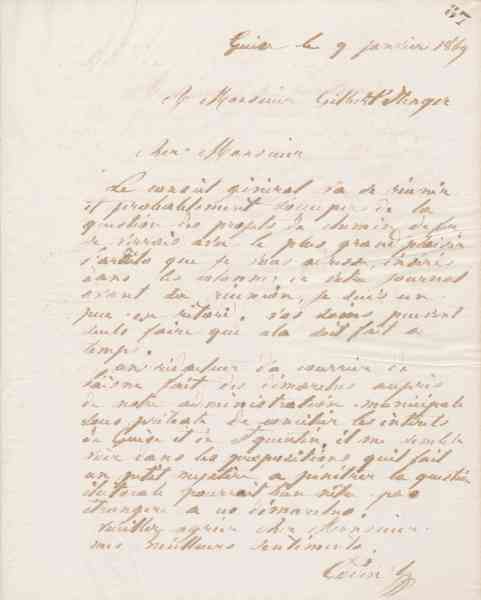 37
Guise le 9 janvier 1869
A Monsieur Gilbert Stenger
Cher Monsieur
Le conseil général va se réunir
et probablement s'occuper de la
question des projets de chemin de fer
je verrais avec le plus grand plaisir
l'article que je vous adresse, inséré
dans les colonnes de votre journal
avant la réunion, je suis un
peu en retard. Vos soins peuvent
seuls faire que cela soit fait à
temps.
un rédacteur du courrier de
l'aisne fait des démarches auprès
de notre administration municipale
sous prétexte de concilier les intérêts
de Guise et de St quentin, il me semble
voir dans les propositions qu'il fait
un petit mystère à pénétrer la question
électorale pourrait bien n'être pas
étrangère à ces démarches.
veuillez agréer cher Monsieur
mes meilleurs sentiments.
Godin